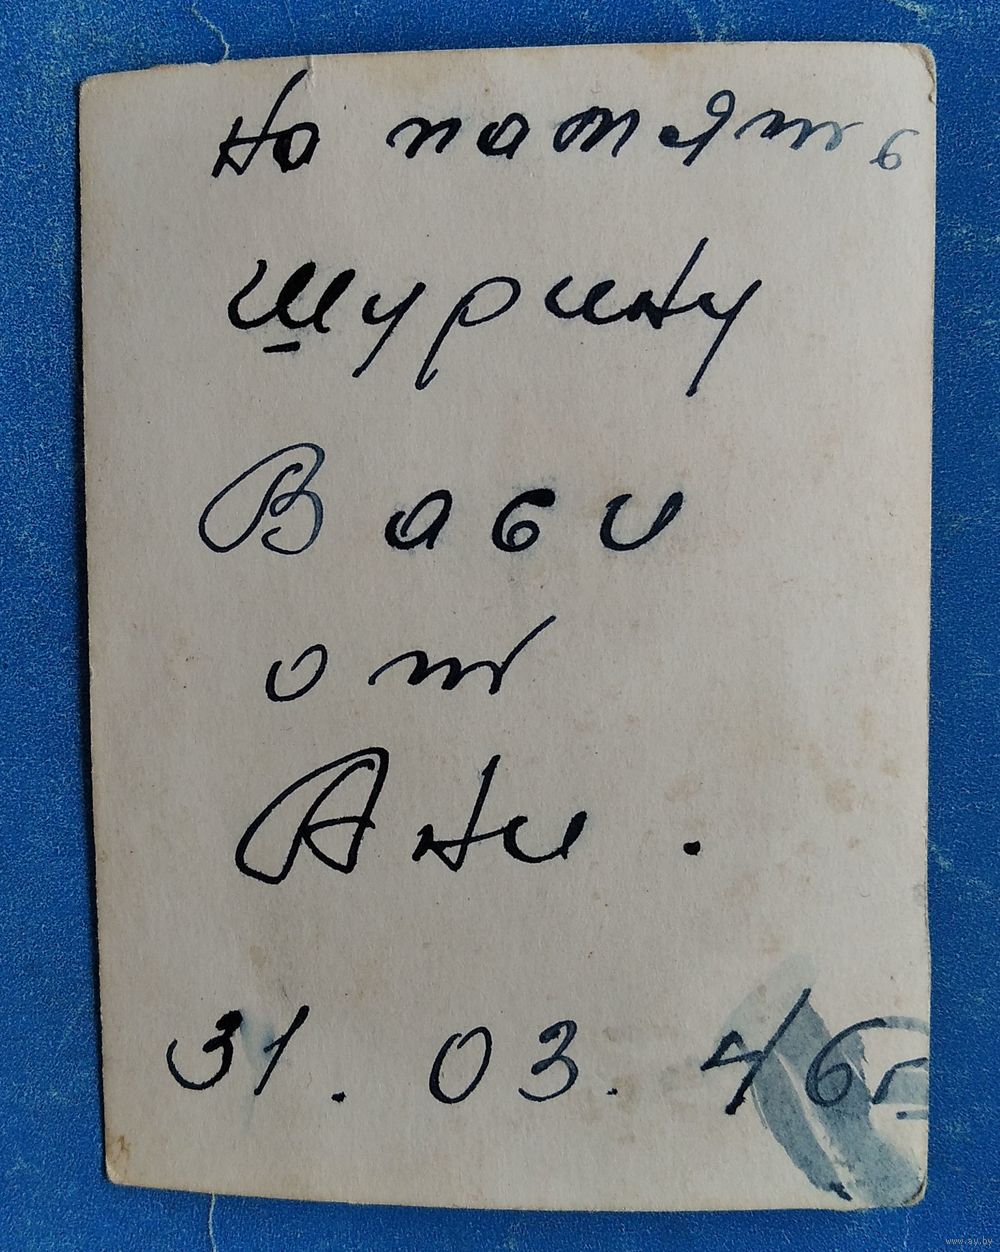 На память
шурину
Васи
от
Ани.
31. 03. 46г
www.ay.by